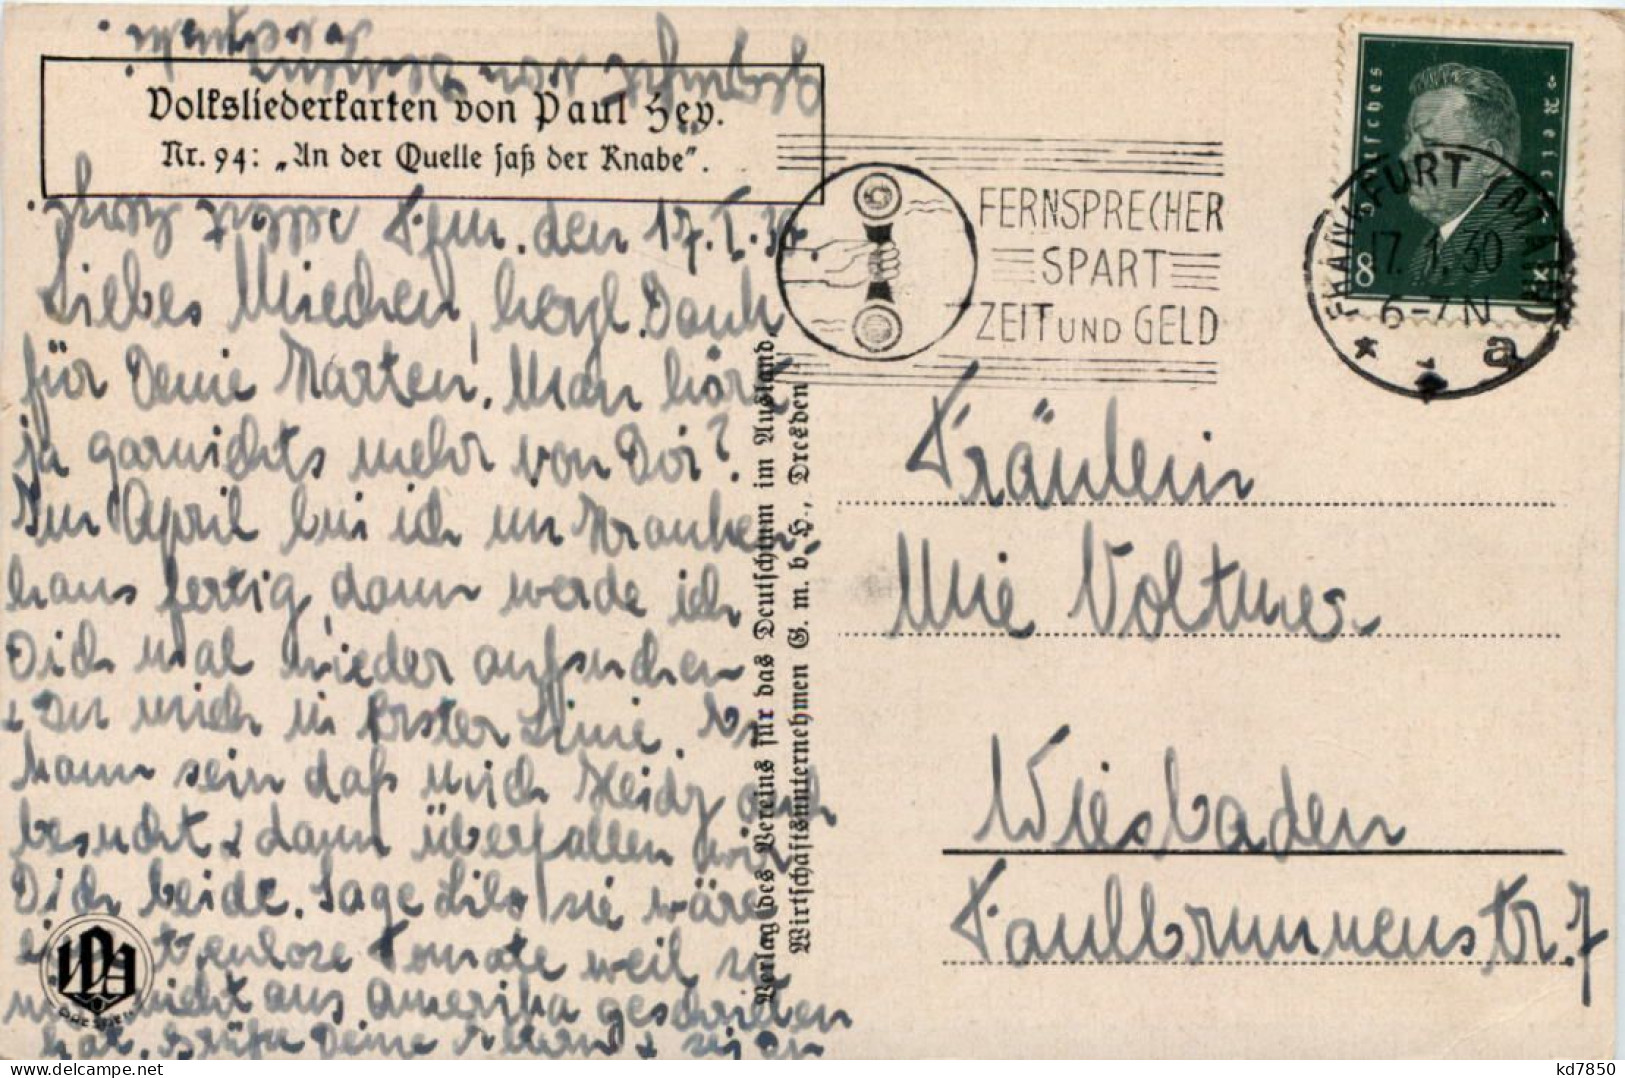 Volksliederkarten von Paul Hey.
Nr. 94: „An der Quelle saß der Knabe“.
Ffm. den 17. I. 30.
Liebes Miechen, herzl. Dank
für Deine Karten. Man hört
ja garnichts mehr von Dir?
Im April bin ich im Kranken-
haus fertig, dann werde ich
Dich mal wieder aufsuchen
+ zu mich in erster Linie. Es
kann sein daß mich Heidy auch
besucht + dann überfallen wir
Dich beide. Sage Lilo, sie wäre
eine treulose Tomate weil sie
mir nicht aus Amerika geschrieben
hat. Grüße Deine Eltern + sei Du
herzlichst
FERNSPRECHER
SPART
ZEIT UND GELD
Deutsches Reich
8
FRANKFURT (MAIN)
17. 1. 30
6-7 N
* a
Verlag des Vereins für das Deutschtum im Ausland,
Wirtschaftsunternehmen G. m. b. H., Dresden
Fräulein
Mie Voltmer
Wiesbaden
Faulbrunnenstr. 7
kd7850